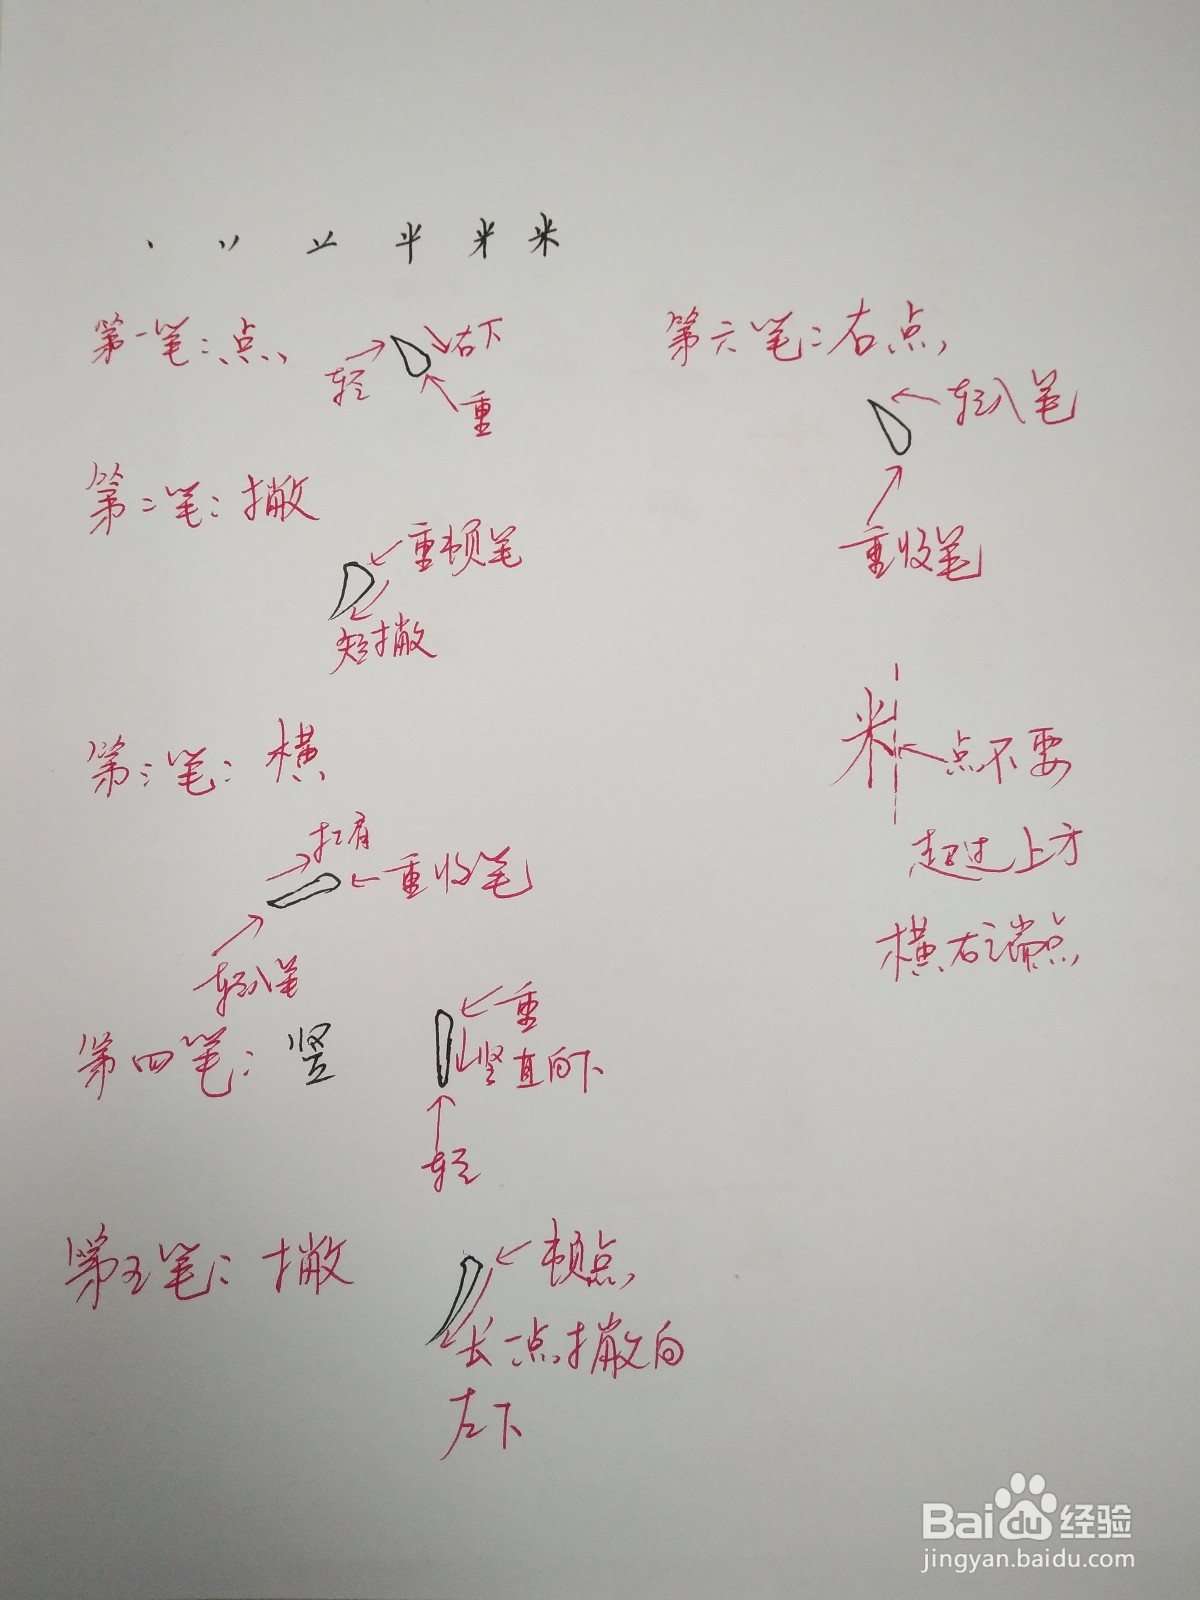 丶 丷 䒑 半 米 米
第一笔：点
轻
右下
重
第二笔：撇
重顿笔
短撇
第三笔：横
扛肩
重收笔
轻入笔
第四笔：竖
重
竖直向下
轻
第五笔：撇
顿点
长一点撇向
左下
第六笔：右点
轻入笔
重收笔
米
点不要
超过上方
横右端点
Baidu经验
jingyan.baidu.com